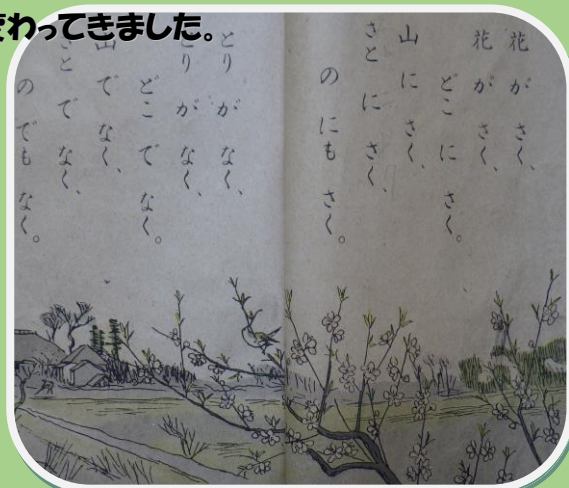 変わってきました。
花がさく、
花がさく、
どこにさく。
山にさく、
さとにさく、
のにもさく。
とりがなく、
とりがなく、
どこでなく。
山でなく、
さとでなく、
のでもなく。